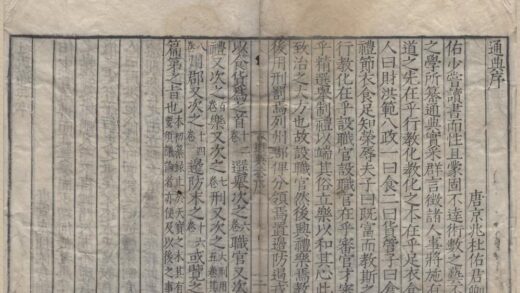 通典序
唐京兆杜佑君卿
佑少嘗讀書而性且蒙固不達術數之藝
之學所纂通典實采群言徵諸人事將施有
道之先在乎行教化教化之本在乎足衣食
人曰財洪範八政一曰食二曰貨管子曰
禮節衣食足知榮辱夫子曰既富而教斯之
行教化在乎設職官設職官在乎審官才審
乎精選舉制禮以端其俗立樂以和其心此
致治之大方也故職官設然後興禮樂焉教
後用刑罰焉列州郡俾分領焉置邊防遏戎
以食貨爲之首十二卷選舉次之六卷職官又次
禮又次之百卷樂又次之七卷刑又次之
州郡又次之十四卷邊防末之十六卷或覽之
篇第之旨也本初纂錄止於天寶之末其有要須議論者亦便及以後之事